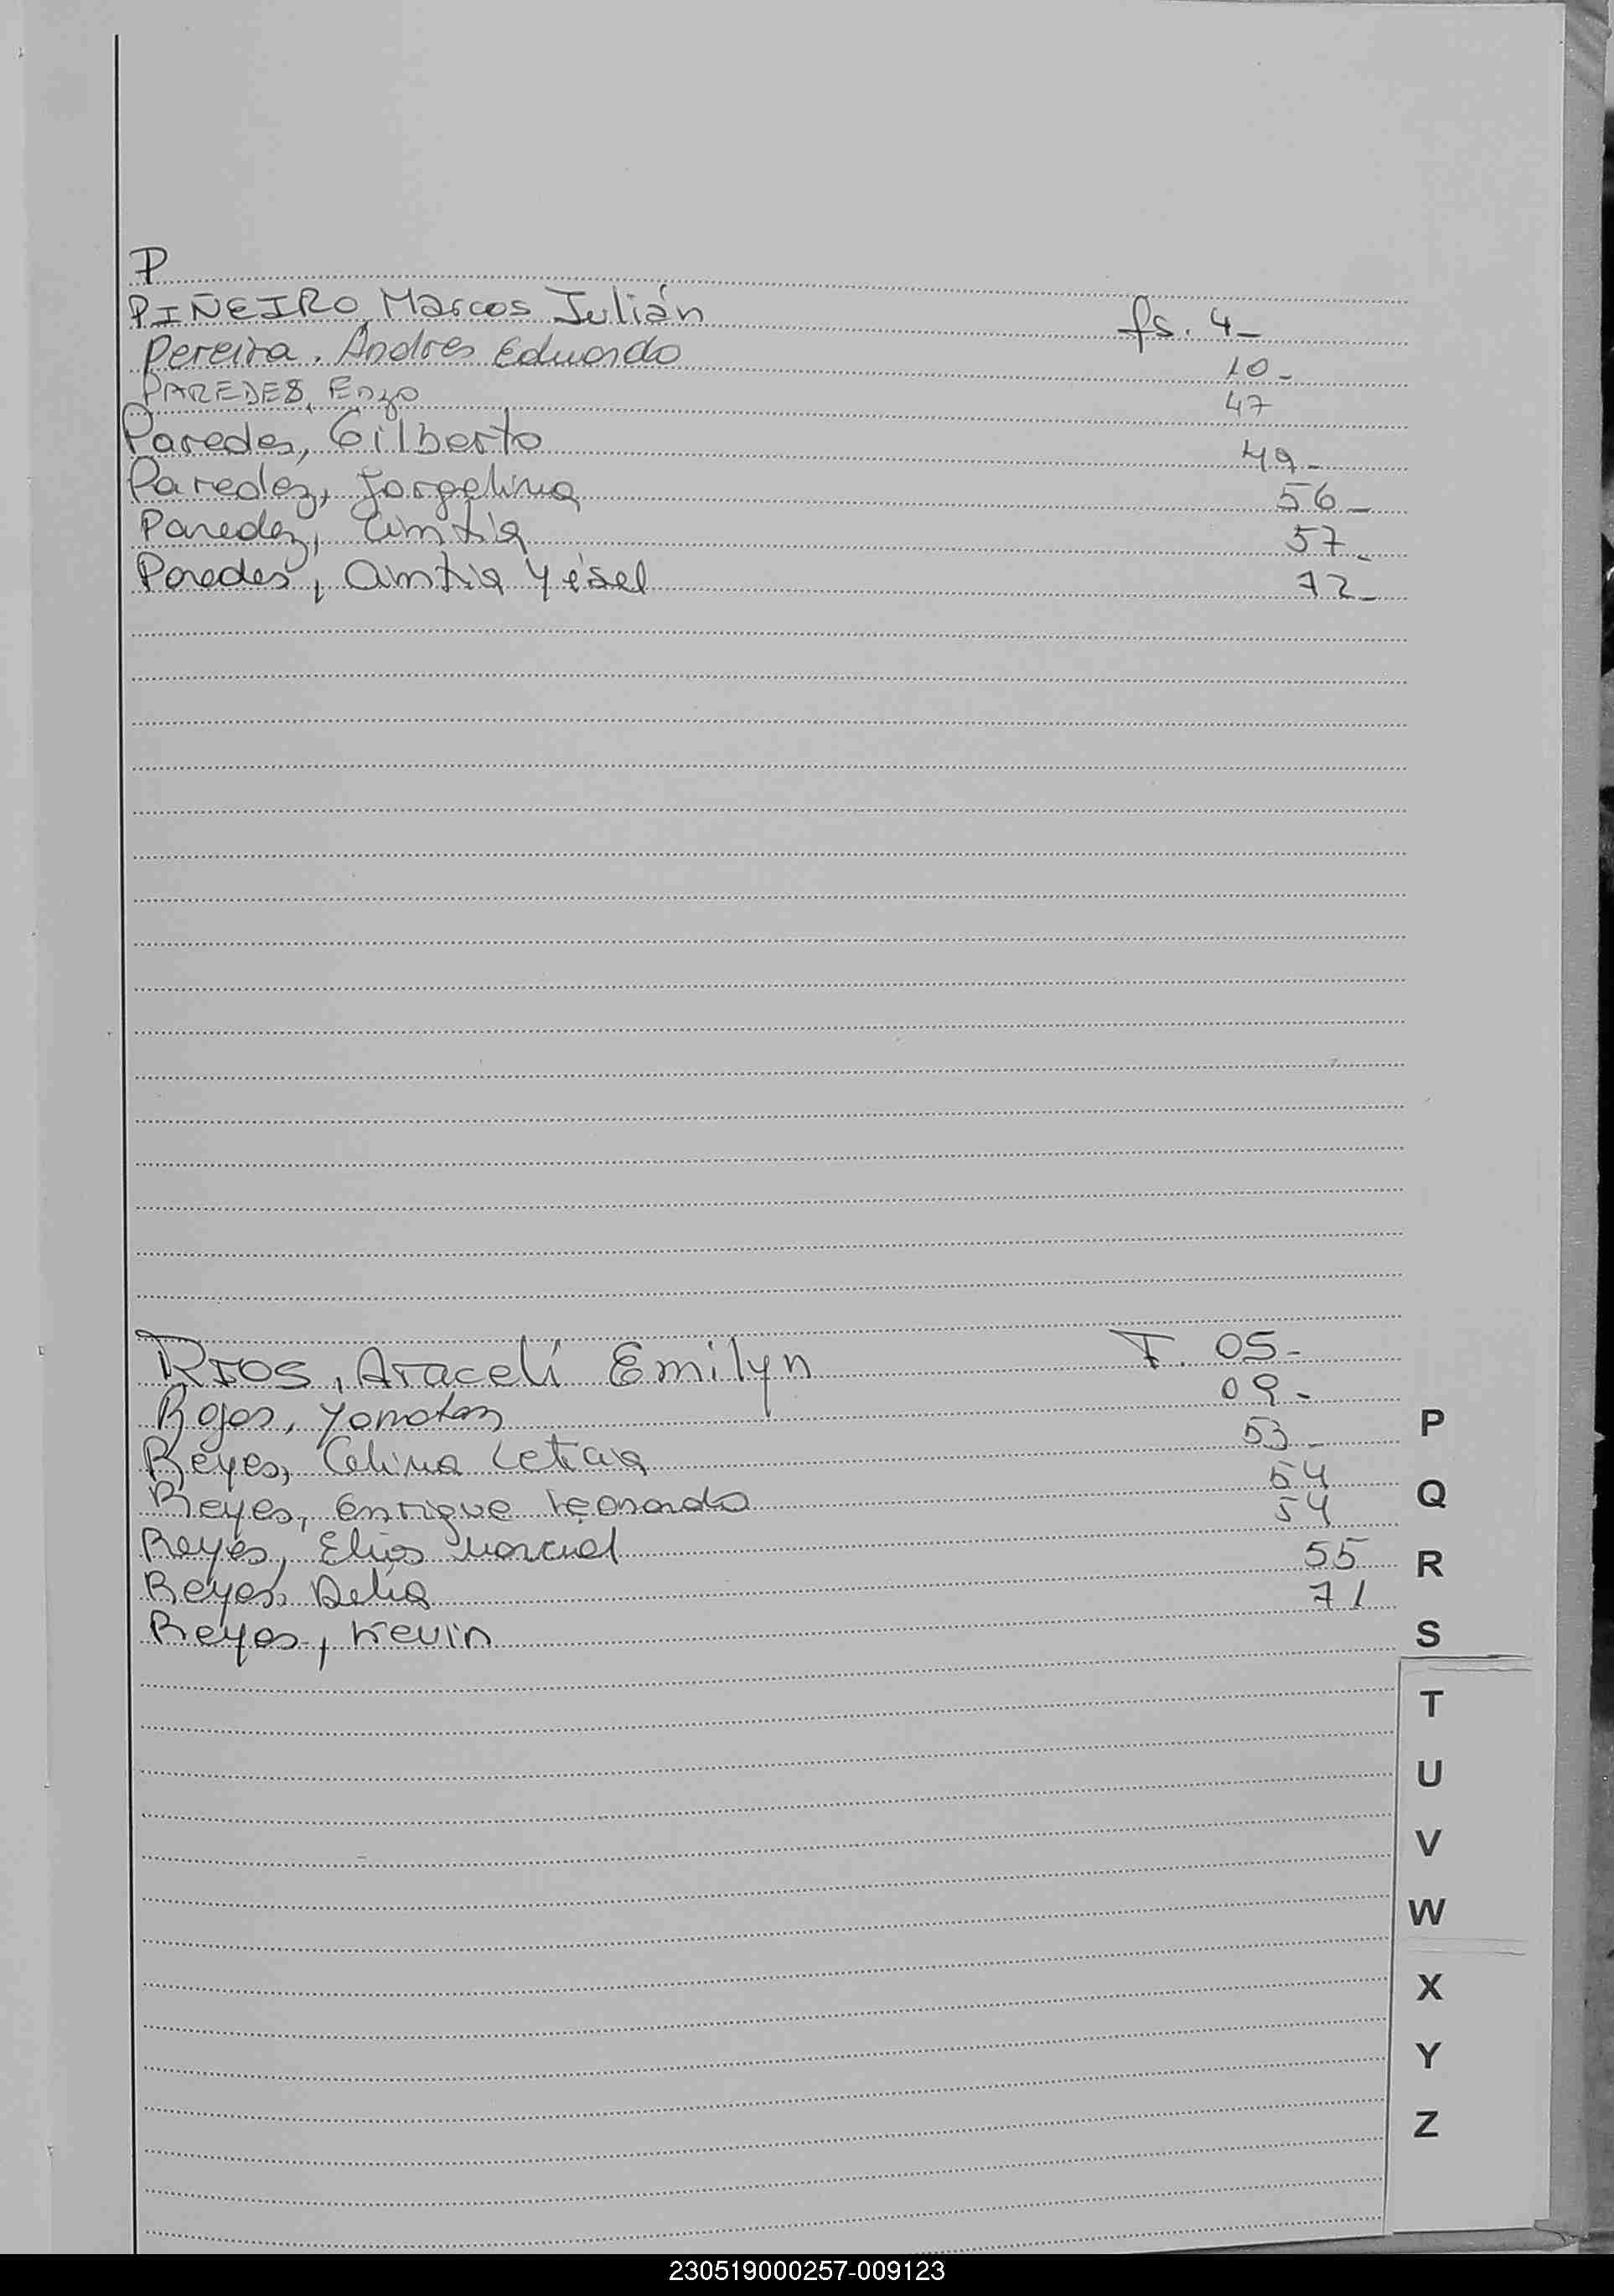 P
PIÑEIRO, Marcos Julián fs. 4-
Pereira. Andres Eduardo 10-
PAREDES, Enzo 47
Paredes, Gilberto 49-
Paredez, Jorgelina 56-
Paredez, Cintia 57-
Paredes, Cintia Yésel 72-
RIOS, Araceli Emilyn F. 05-
Rojas, Yonatan 09-
Reyes, Celina Leticia 53-
Reyes, Enrique Leonardo 54
Reyes, Elias Marcial 54
Reyes, Delia 55
Reyes, Kevin 71
P
Q
R
S
T
U
V
W
X
Y
Z
230519000257-009123